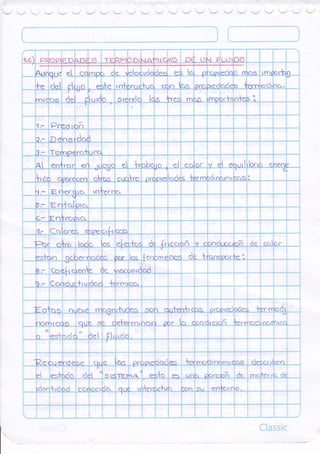 1.6) PROPIEDADES TERMODINAMICAS DE UN FLUIDO
Aunque el campo de velocidades es la propiedad mas importan
te del flujo, este interactua con las propiedades termodina-
micas del fluido, siendo las tres mas importantes:
1.- Presion
2.- Densidad
3.- Temperatura
Al entrar en juego el trabajo, el calor y el equilibrio energe
tico aparecen otras cuatro propiedades termodinamicas:
4.- Energia interna
5.- Entalpia
6.- Entropia
7.- Calores especificos
Por otro lado los efectos de fricción y conducción de calor
estan gobernados por los fenomenos de transporte:
8.- Coeficiente de viscosidad
9.- Conductividad termica
Estas nueve magnitudes son autenticas propiedades termodi
namicas que se determinan por la condición termodinamica
o "estado" del fluido.
Recuerdese que las propiedades termodinamicas describen
el estado del "SISTEMA", esto es una porción de materia de
identidad conocida que interactua con su entorno.
Classic